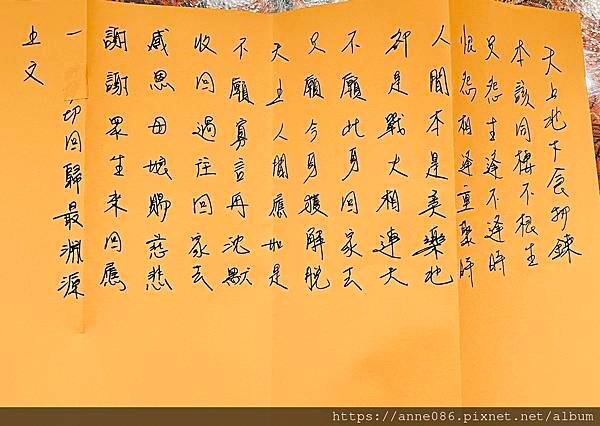 天上北下食物鍊
本該同棲不根生
只怨生逢不逢時
恨怨相逢重聚時
人間本是美樂地
卻是戰火相連天
不願此身回家去
只願今身獲解脫
天上人間應如是
不願寡言再沈默
收回過往回家去
感恩母娘賜慈悲
謝謝眾生來回應
一切回歸最淵源
上文
https://anne086.pixnet.net/album